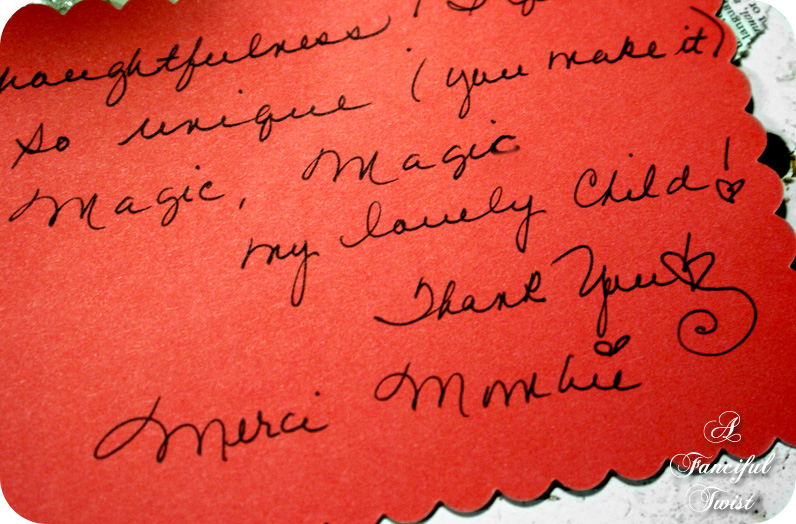 thoughtfulness,
so unique (you make it)
Magic, Magic
my lovely Child!
Thank You!
Merci Mombie
A
Fanciful
Twist